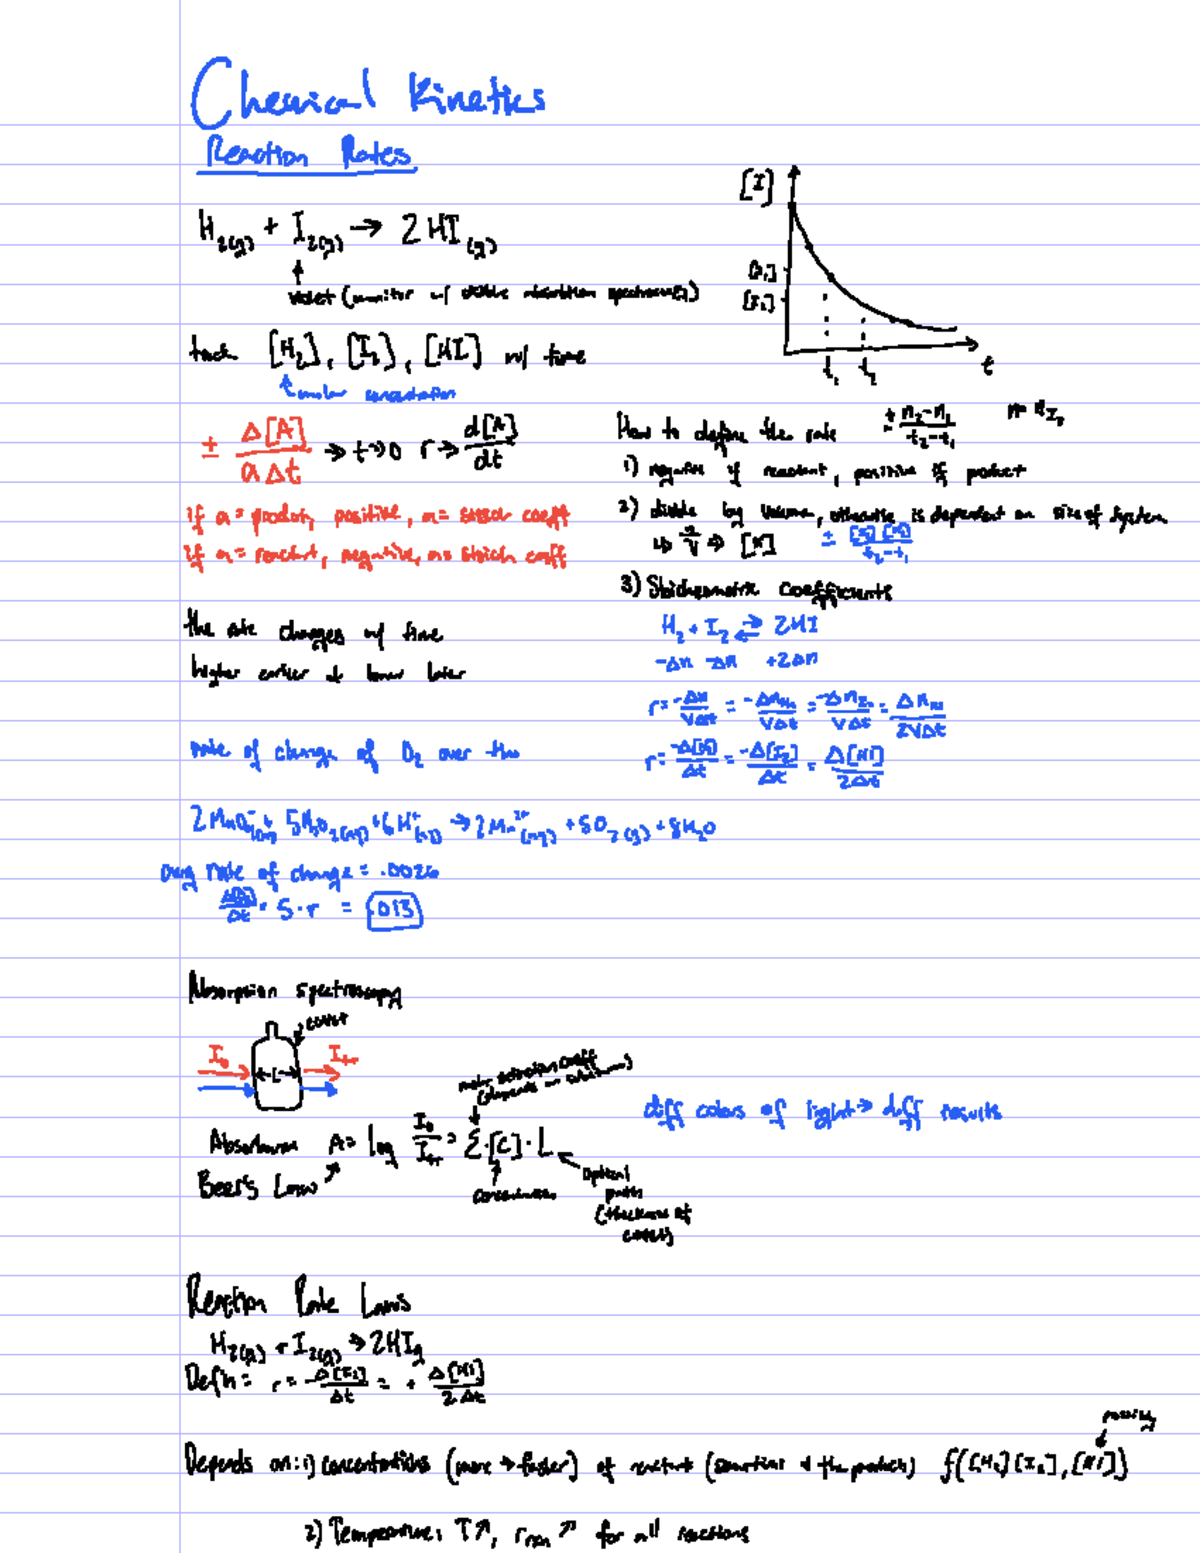 Chemical Kinetics
Reaction Rates
H₂(g) + I₂(g) → 2HI(g)
violet (monitor w/ visible absorbtion spectroscopy)
[I]
[I₁]
[I₂]
t₁ t₂ t
track [H₂], [I₂], [HI] w/ time
molar concentration
± Δ[A] / aΔt → t→0 r → d[A]/dt
if a = product, positive, a = stoich coeff
if a = reactant, negative, a = stoich coeff
the rate changes w/ time
higher earlier & lower later
How to define the rate ± n₂-n₁ / t₂-t₁ n = n_I₂
1) negative if reactant, positive if product
2) divide by volume, otherwise is dependent on size of system
↳ n/V → [X] ± [X₂]-[X₁] / t₂-t₁
3) Stoichiometric coefficients
H₂ + I₂ ⇌ 2HI
-Δn -Δn +2Δn
r = -Δn/VΔt = -Δn_H₂/VΔt = -Δn_I₂/VΔt = Δn_HI/2VΔt
r = -Δ[H₂]/Δt = -Δ[I₂]/Δt = Δ[HI]/2Δt
rate of change of O₂ over
2MnO₄⁻(aq) + 5H₂O₂(aq) + 6H⁺(aq) → 2Mn²⁺(aq) + 5O₂(g) + 8H₂O
avg rate of change = .0026
Δ[O₂]/Δt = 5·r = .013
Absorption spectroscopy
cuvet
I₀ L I_tr
molar extinction coeff
(depends on
Absorbance A = log I₀/I_tr = Σ·[C]·L
Beer's Law
concentration
optical
path
(thickness of
cuvet)
diff colors of light → diff results
Reaction Rate Laws
H₂(g) + I₂(g) → 2HIg
Defn: r = -Δ[I₂]/Δt = + Δ[HI]/2Δt
possibly
Depends on: 1) concentrations (more → faster) of reactants (sometimes & the products) f([H₂][I₂],[HI])
2) Temperature: T↗, r_rxn ↗ for all reactions